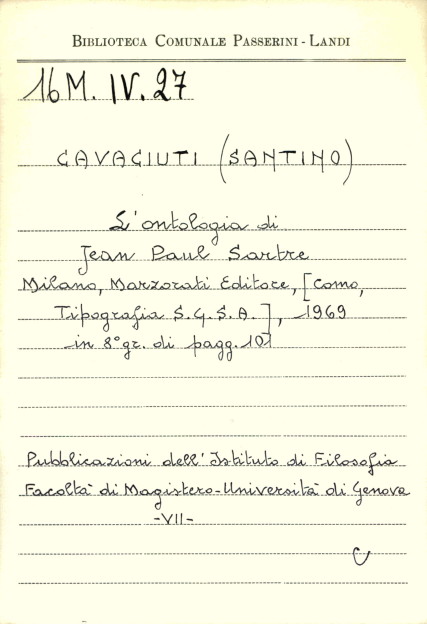 BIBLIOTECA COMUNALE PASSERINI - LANDI
16 M. IV. 27
CAVACIUTI (SANTINO)
L'ontologia di
Jean Paul Sartre
Milano, Marzorati Editore, [Como,
Tipografia S.G.S.A.], 1969
in 8° gr. di pagg. 101
Pubblicazioni dell'Istituto di Filosofia
Facoltà di Magistero-Università di Genova
-VII-
C